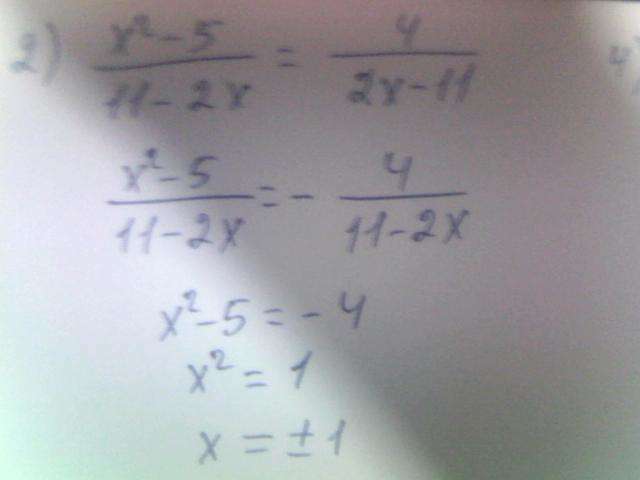 2) x²-5/11-2x = 4/2x-11
x²-5/11-2x = - 4/11-2x
x²-5=-4
x² = 1
x = ±1